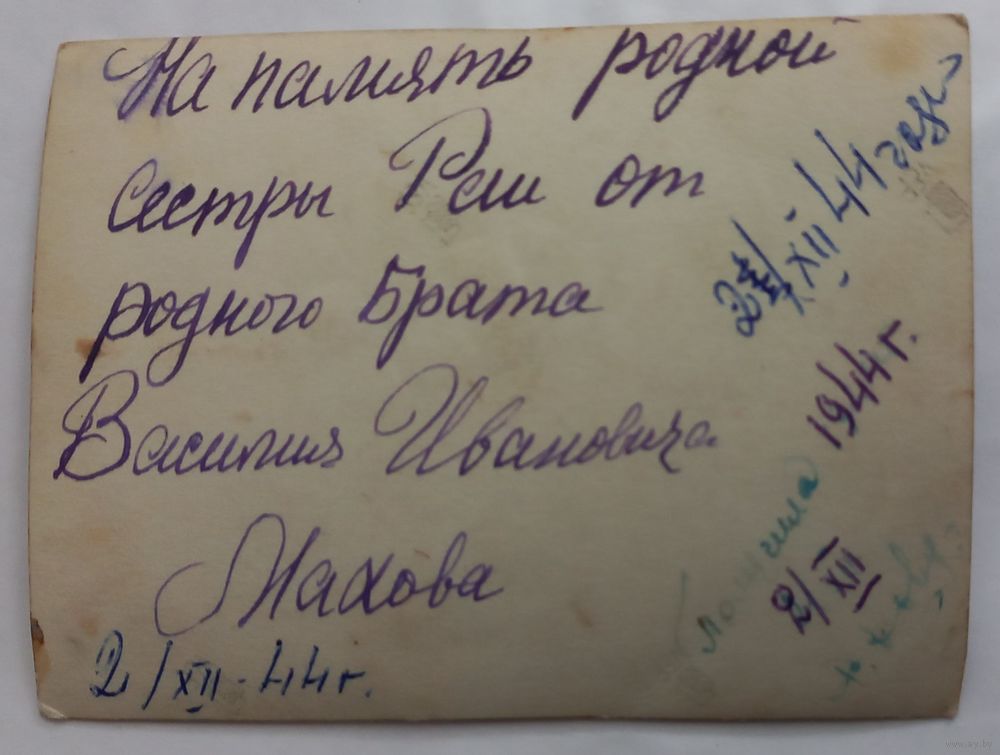 На память родной
сестры Раи от
родного брата
Василия Ивановича
Махова
2/XII-44г.
XII 44 года
Получила
2/XII 1944г.